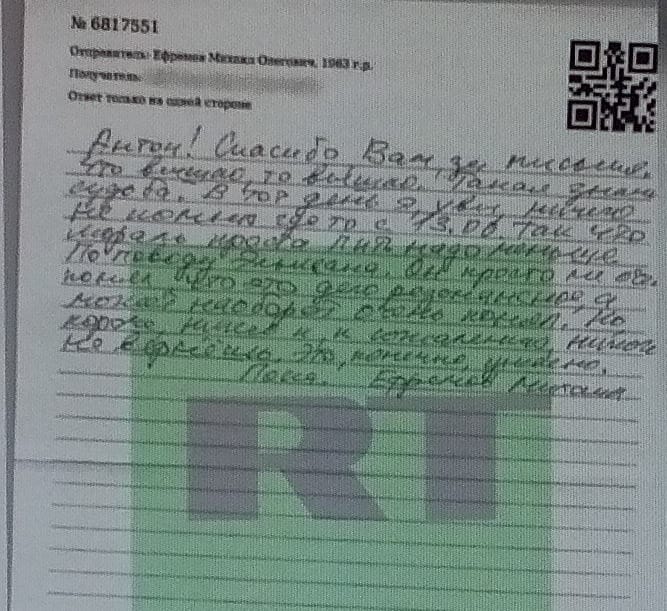 № 6817551
Отправитель: Ефремов Михаил Олегович, 1963 г.р.
Получатель:
Ответ только на одной стороне
Антон! Спасибо Вам, за письмо.
Что вышло, то вышло. Такая
судьба. В тот день я, увы, ничего
не помню где-то с 13.00 так что
мораль проста пить надо меньше
По поводу Он просто не
понял, что это дело резонансное, а
может наоборот очень понял. Но
короче, и, к сожалению, ничем
не Это, конечно, ужасно.
Пока. Ефремов Михаил
RT